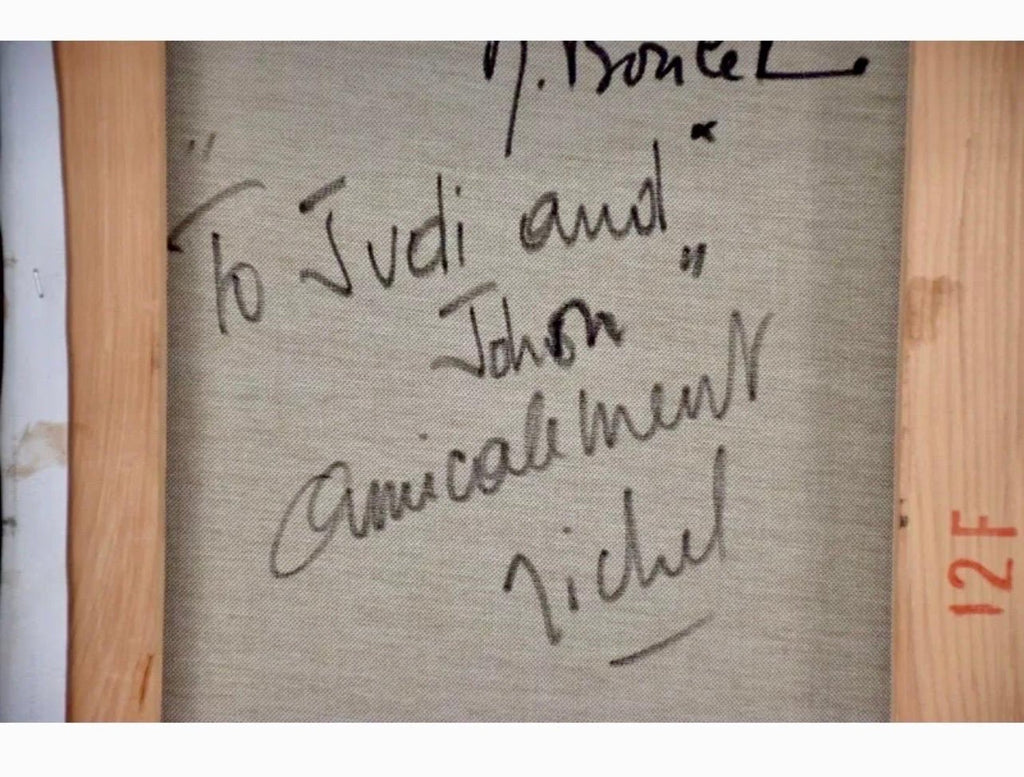 "To Judi and
Johon"
amicalement
Michel
12F